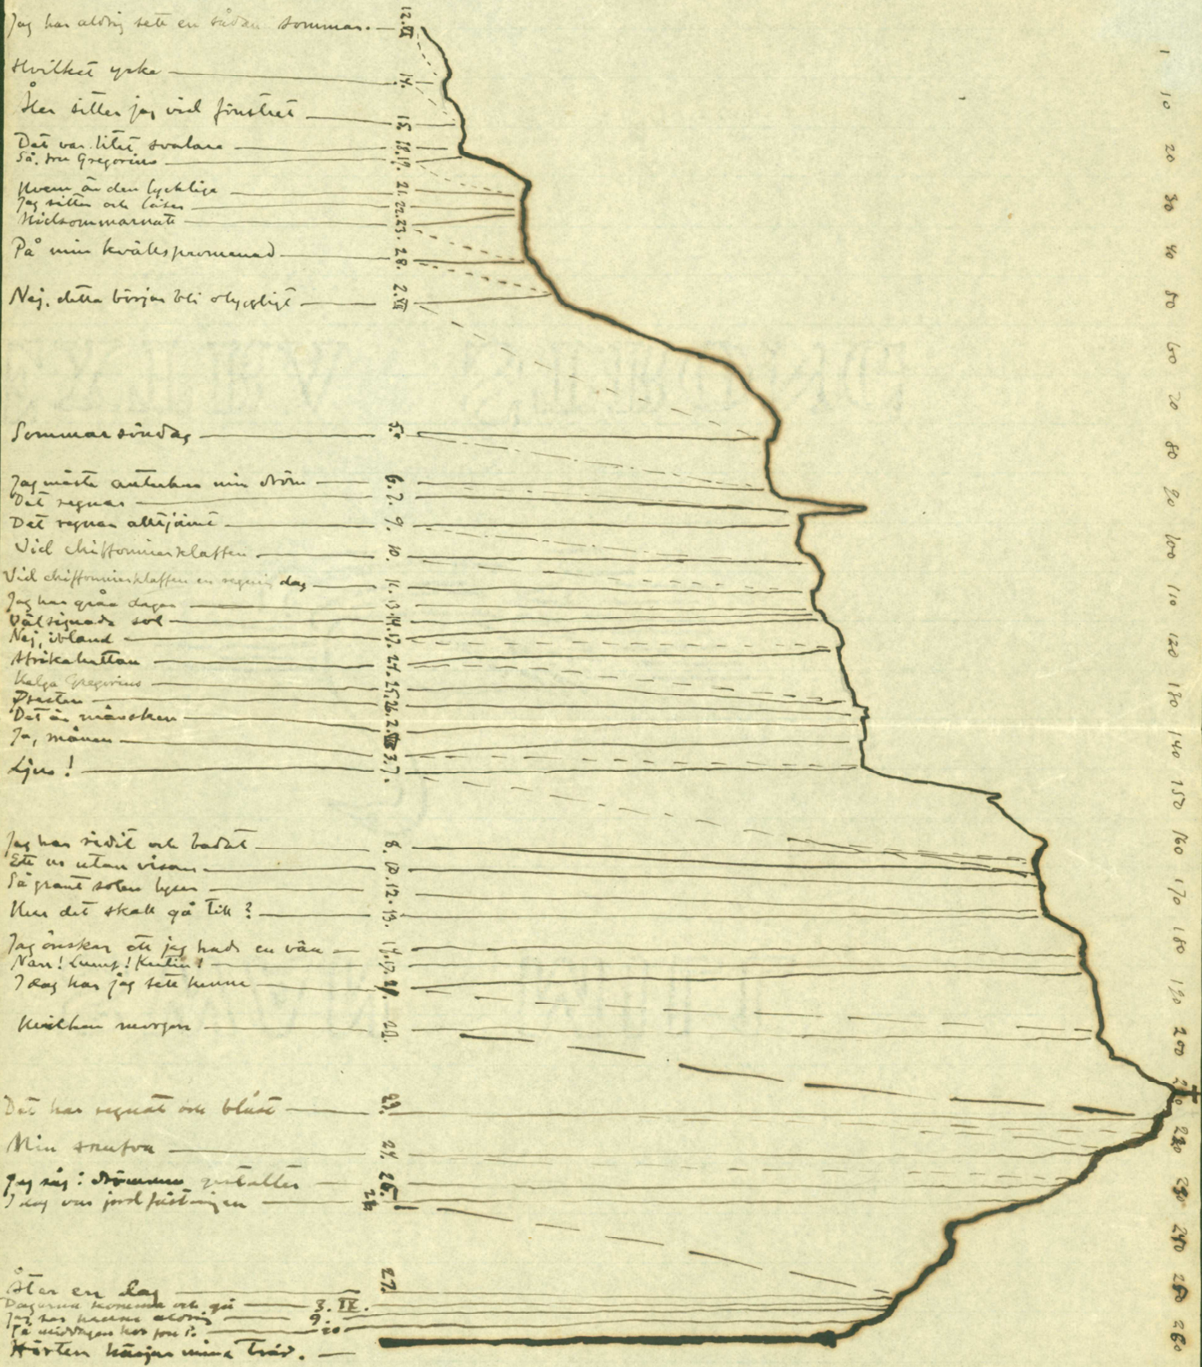 Jag har aldrig sett en sådan sommar. 12.VI
Hvilket yrke 14.
Åter sitter jag vid fönstret 15
Det var litet svalare 18.
Så, fru Gregorius 19.
Hvem är den lycklige 21.
Jag sitter och läser 22.
Midsommarnatt 23.
På min kvällspromenad 28.
Nej, detta börjar bli olyckligt 2.VII
Sommarsöndag 5.
Jag måste anteckna min dröm 6.
Det regnar 7.
Det regnar alltjämt 9.
Vid chiffonierklaffen 10.
Vid chiffonierklaffen en regnig dag 11.
Jag har gråa dagar 13.
Välsignade sol 14.
Nej, ibland 17.
24.
Helga Gregorius 25.
Prästen 26.
Det är månsken 2.VIII
Ja, månen 3.
Ljus! 7.
Jag har ridit och badat 8.
Ett ur utan visare 10.
Så grant solen lyser 12.
Hur det skall gå till? 13.
Jag önskar att jag hade en vän 14.
17.
I dag har jag sett henne
Hvilken morgon 20.
Det har regnat och blåst 23.
Min 24.
Jag såg i drömmen gestalter 26.
I dag var jordfästningen
27.
Åter en dag
Dagarna komma och gå 3.IX.
Jag 9.
På middagen hos 20
Hösten härjar mina träd.
1
10
20
30
40
50
60
70
80
90
100
110
120
130
140
150
160
170
180
190
200
210
220
230
240
250
260